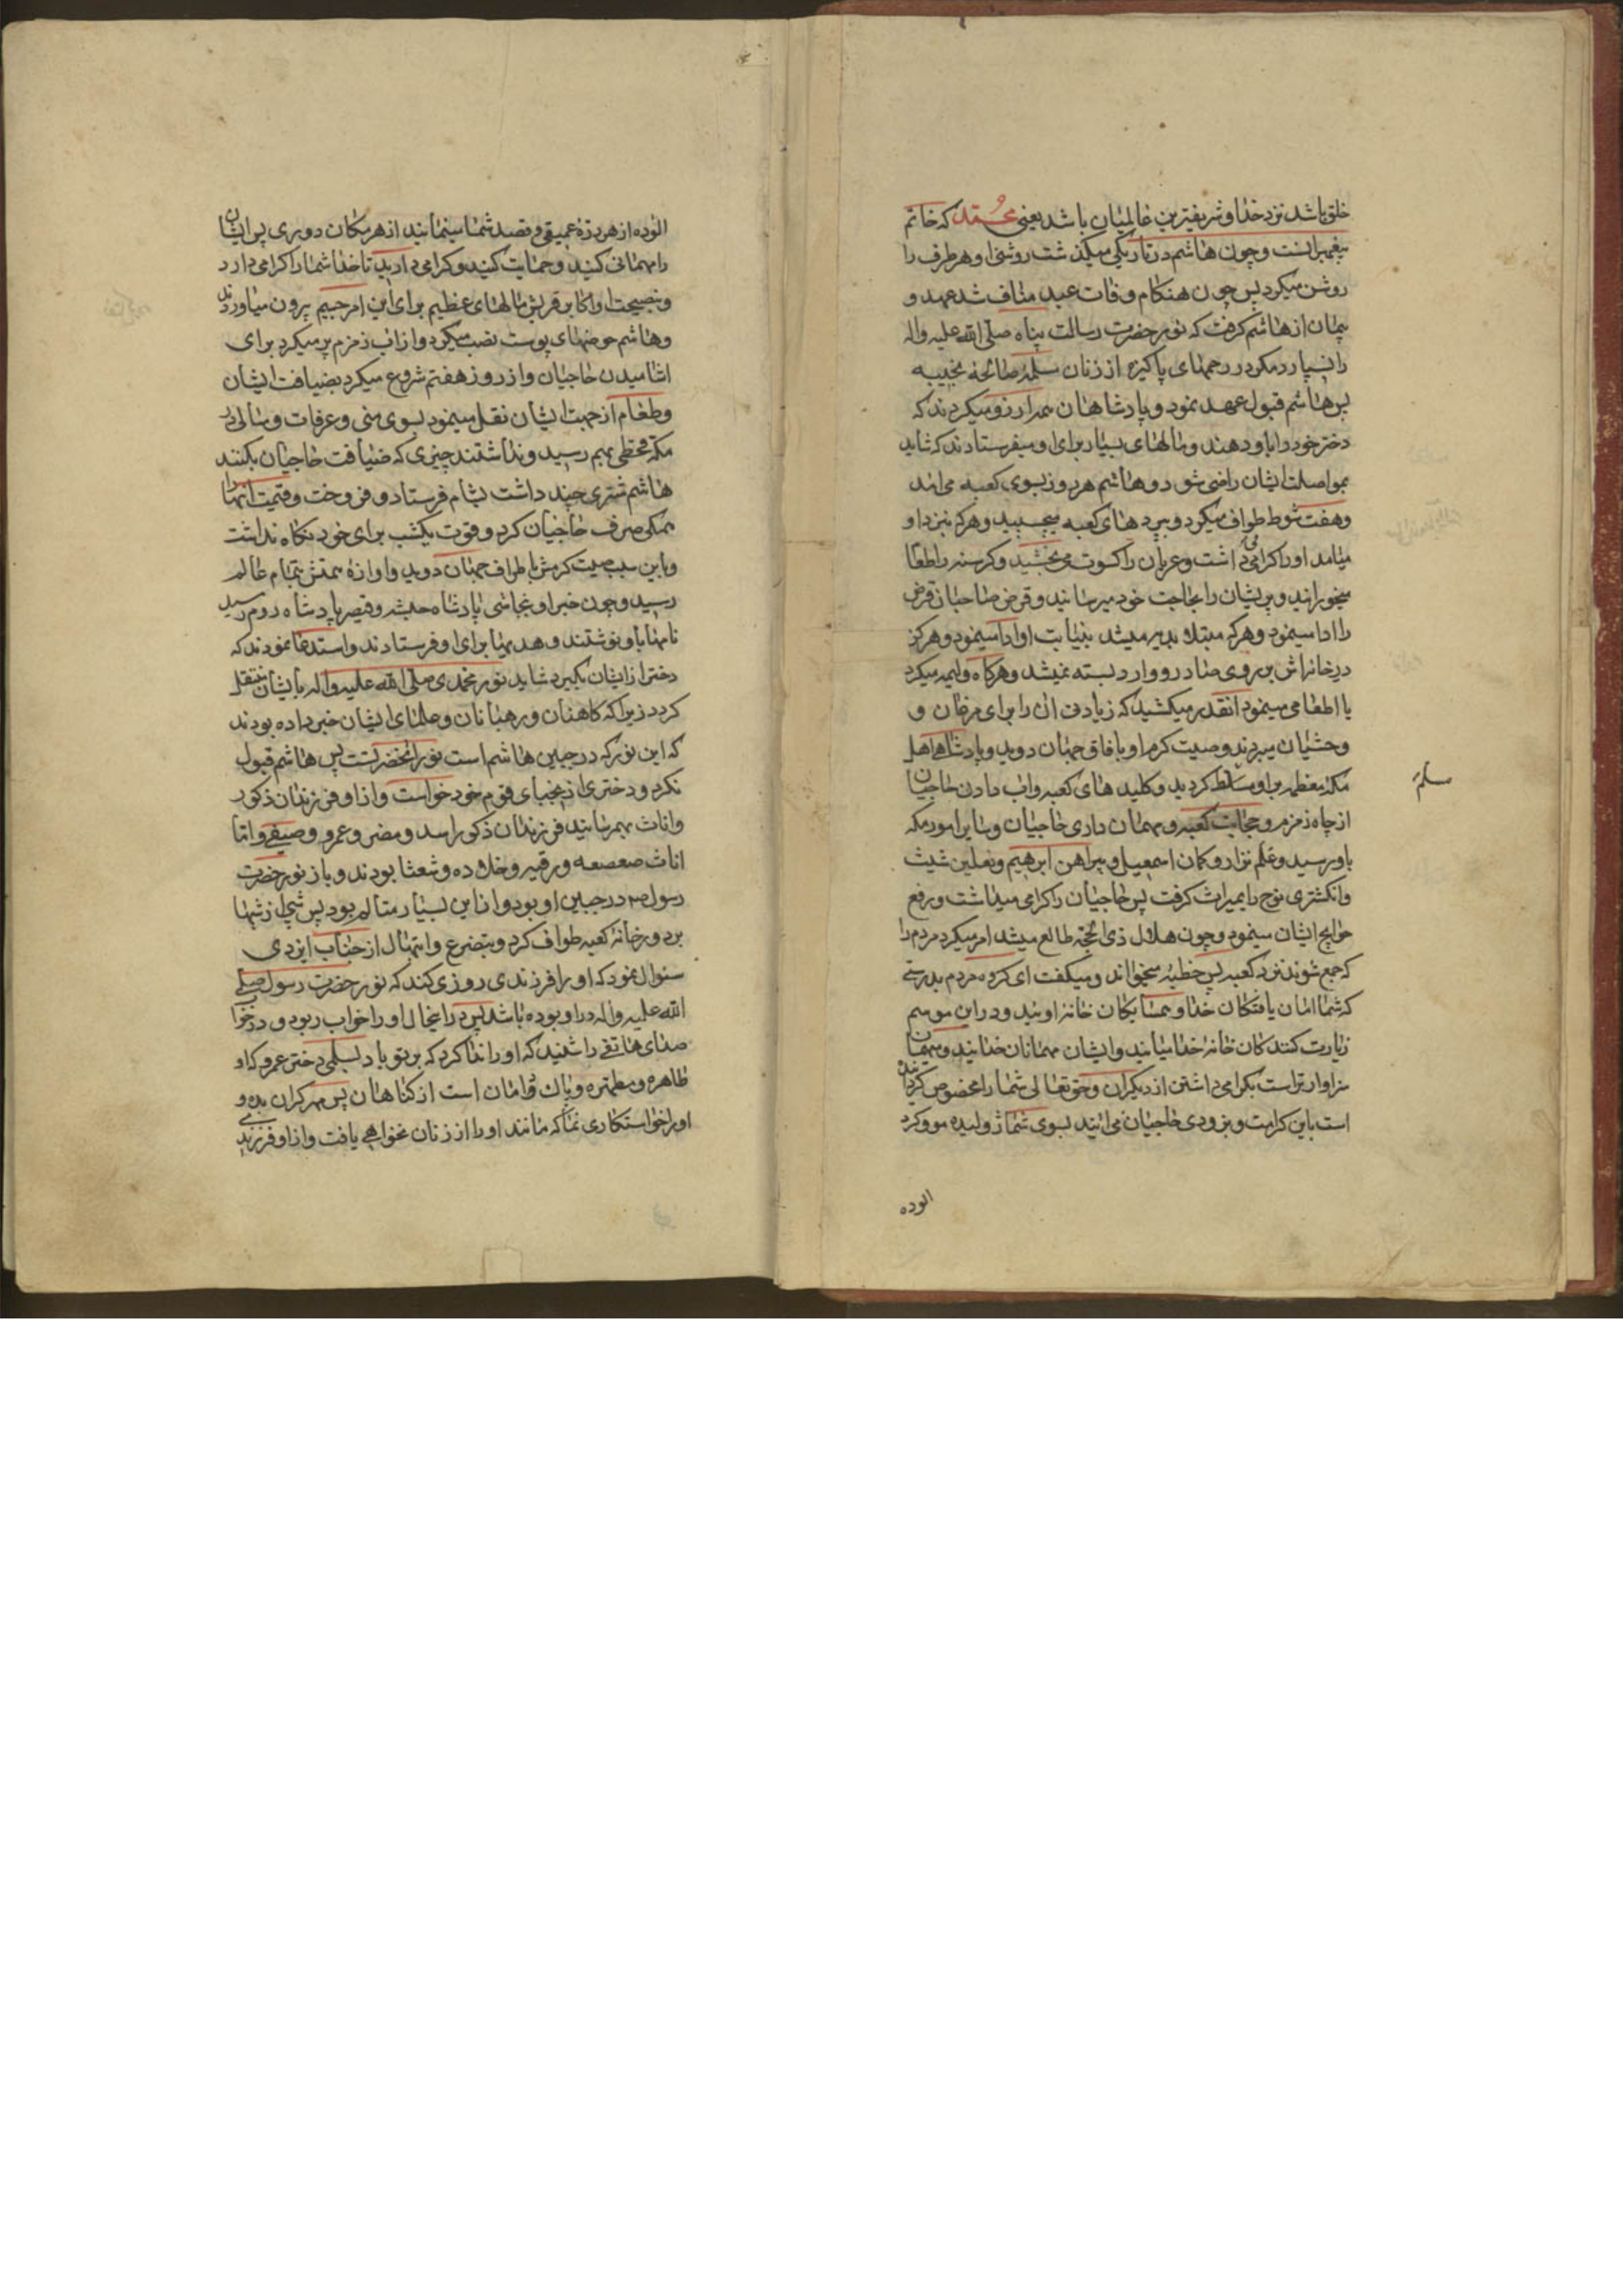 خلق باشد نزد خدا و شریفترین عالمیان باشد یعنی محمد که خاتم
پیغمبرانست و چون هاشم در تاریکی میگذشت روشنی او هر طرف را
روشن میکرد پس چون هنگام وفات عبد مناف شد عهد و
پیمان از هاشم گرفت که نور حضرت رسالت پناه صلی الله علیه واله
را نسپارد مگر در رحمهای پاکیزه از زنان مسلمهٔ صالحهٔ نجیبه
پس هاشم قبول عهد نمود و پادشاهان همه ارزو میکردند که
دختر خود را باو دهند و مالهای بسیار برای او میفرستادند که شاید
بمواصلت ایشان راضی شود و هاشم هر روز بسوی کعبه می‌امد
و هفت شوط طواف میکرد و بپرده‌های کعبه میچسپید و هر که بنزد او
میامد او را کرامی میداشت و عریان را کسوت می‌بخشید و کرسنه را طعام
میخورانید و پریشان را بحاجت خود میرسانید و قرض صاحبان قرض
را ادا مینمود و هر که مبتلا بدیه میشد بنیابت او ادا مینمود و هرکز
در خانه‌اش بر روی صادر و وارد بسته نمیشد و هرکاه ولیمه میکرد
یا اطعامی مینمود انقدر میکشید که زیادتی ان را برای مرغان و
وحشیان میبردند و صیت کرم او بافاق جهان دوید و پادشاهی اهل
مکه معظمه باو مسلم کردید و کلید های کعبه و اب دادن حاجیان
از چاه زمزم و حجابت کعبه و مهمان داری حاجیان و سایر امور مکه
باو رسید و علم نزار و کمان اسمعیل و پیراهن ابرهیم و نعلین شیث
و انکشتری نوح را بمیراث کرفت پس حاجیان را کرامی میداشت و رفع
حوایج ایشان مینمود و چون هلال ذی الحجه طالع میشد امر میکرد مردم را
که جمع شوند نزد کعبه پس خطبه میخواند و میکفت ای کروه مردم بدرستی
که شما امان یافتکان خدا و همسایکان خانهٔ اوئید و در این موسم
زیارت کنندکان خانهٔ خدا میایند و ایشان مهمانان خدایند و میهمان
سزاوارتر است بکرامی داشتن از دیکران و حق تعالی شما را مخصوص کردانیده
است باین کرامت و بزودی حاجیان می‌ایند بسوی شما ژولیده مو و کرد
الوده
الوده از هر درهٔ عمیقی و قصد شما مینمایند از هر مکان دوری پس ایشان
را مهمانی کنید و حمایت کنید و کرامی دارید تا خدا شما را کرامی دارد
و بنصیحت او اکابر قریش مالهای عظیم برای این امر جسیم بیرون میاوردند
و هاشم حوضهای پوست نصب میکرد و از اب زمزم پر میکرد برای
اشامیدن حاجیان و از روز هفتم شروع میکرد بضیافت ایشان
و طعام از جهت ایشان نقل مینمود بسوی منی و عرفات و سالی در
مکه قحطی بهم رسید و نداشتند چیزی که ضیافت حاجیان بکنند
هاشم شتری چند داشت بشام فرستاد و فروخت و قیمت انها را
همکی صرف حاجیان کرد و قوت یکشب برای خود نکاه نداشت
و باین سبب صیت کرمش باطراف جهان دوید و اوازهٔ همتش بتمام عالم
رسید و چون خبر او بنجاشی پادشاه حبشه و قیصر پادشاه روم رسید
نامها باو نوشتند و هدیها برای او فرستادند و استدعا نمودند که
دختر از ایشان بکیرد شاید نور محمدی صلی الله علیه واله بایشان منتقل
کردد زیرا که کاهنان و رهبانان و علمای ایشان خبر داده بودند
که این نور که در جبین هاشم است نور انحضرتست پس هاشم قبول
نکرد و دختری از نجبای قوم خود خواست و از او فرزندان ذکور
و اناث بهم رسانید فرزندان ذکور اسد و مضر و عمرو و صیفی و اما
اناث صعصعه و رقیه و خلاده و شعثا بودند و باز نور حضرت
رسول ص در جبین او بود و از این بسیار متالم بود پس شبی از شبها
بر دور خانهٔ کعبه طواف کرد و بتضرع و ابتهال از جناب ایزدی
سئوال نمود که او را فرزندی روزی کند که نور حضرت رسول صلی
الله علیه واله در او بوده باشد پس در انحال او را خواب ربود و در خواب
صدای هاتفی را شنید که او را ندا کرد که بر تو باد بسلمی دختر عمرو که او
طاهره و مطهره و پاک دامان است از کناهان پس مهر کران بده و
او را خواستکاری نما که مانند او را از زنان نخواهی یافت و از او فرزندی